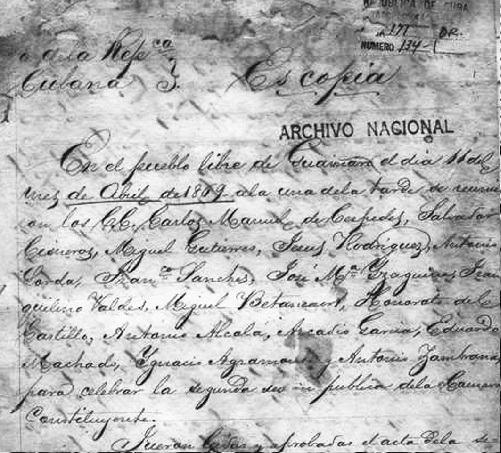 REPUBLICA DE CUBA
177 DR.
NUMERO 134-
o de la Repca
Cubana
Es copia
ARCHIVO NACIONAL
En el pueblo libre de Guaimaro el dia 11 del
mes de Abril de 1869 a la una de la tarde se reunie
ron los C.C. Carlos Manuel de Cespedes, Salvador
Cisneros, Miguel Gutierres, Jesus Rodriguez, Antonio
Lorda, Franco Sanches, José Ma Izaguirre, Tran
quilino Valdes, Miguel Betancourt, Honorato del
Castillo, Antonio Alcala, Arcadio Garcia, Eduardo
Machado, Ignacio Agramonte, Antonio Zambrana
para celebrar la segunda publica de la Camara
Constituyente.
Fueron leidas y aprobadas el acta de la se